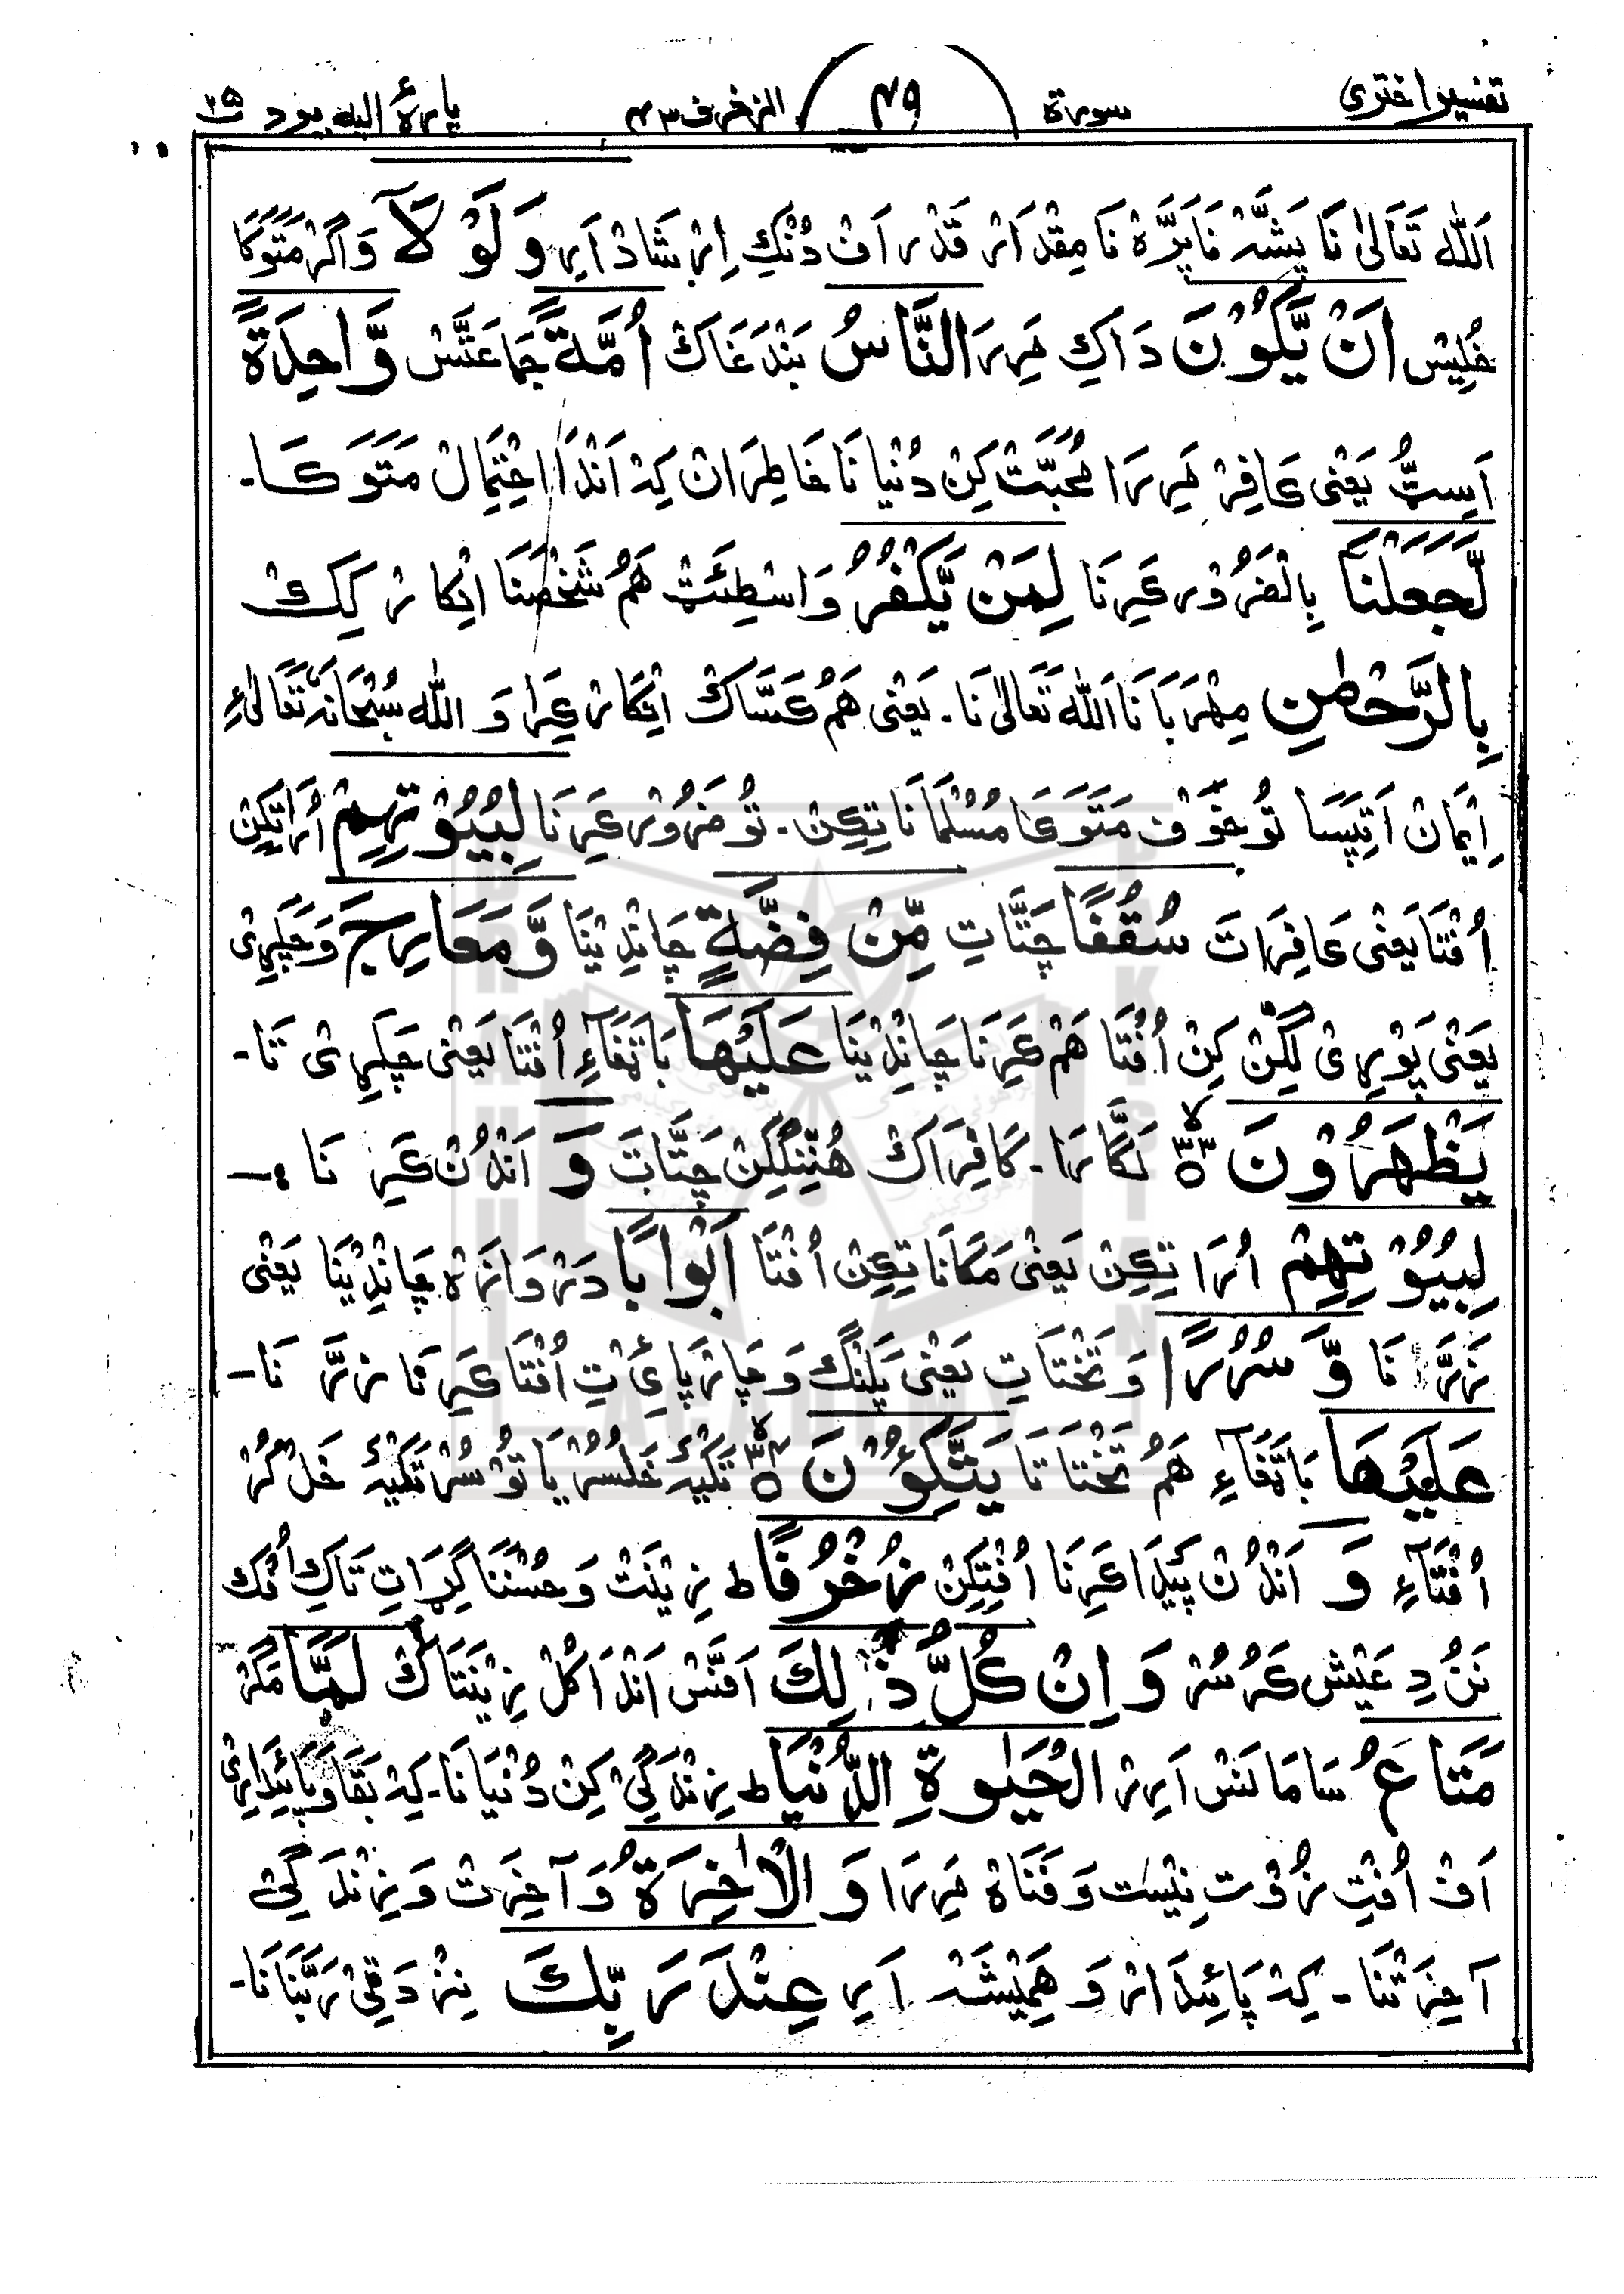 تفسیر اختری سورة ۴۹ الزخرف ۴۳ پارۀ الیه یرد ۲۵
اَللّٰه تَعَالیٰ نَا پَشَّهْ نَا پَرَّهْ نَا مِقْدَارْ قَدْر اَفْ دُنْكِ اِرْشَادْ اَرِ وَلَوْلَآ وَ اَگَرْ مَتَوَكَا
خُلِیْس اَنْ یَّكُوْنَ دَاكِ مَرِرَ النَّاسُ بَنْدَغَاكْ اُمَّةً جَمَاعَتَّسْ وَّاحِدَةً
اَسِٹُّ یَعْنی كَافِرْ مَرِرَا مُحَبَّتْ كِنْ دُنْیَا نَا خَاطِرَانْ كِهْ اَنْدَا اِحْتِمَالْ مَتَوَكَا۔
لَّجَعَلْنَا بِالْضَرُوْر كَرِنَا لِمَنْ یَّكْفُرُ وَاسْطِئَٹْ هَمُ شَخْصَنَا اِنْكَارْ كِكْ
بِالرَّحْمٰنِ مِهْرَبَانَا اَللّٰه تَعَالیٰ نَا۔ یَعْنی هَمُ كَسَّاكْ اِنْكَارْ كَرِ وَ اللّٰه سُبْحَانَهٗ تَعَالیٰءِ
اِیْمَانْ اَتِپَسَا تُو خَوْف مَتَوَكَا مُسُلْمَانَا تِكِنْ۔ تُو ضَرُوْر كَرِنَا لِبُیُوْتِهِمْ اُرَاتِكِنْ
اُفْتَا یَعْنی كَافِرَاتَ سُقُفًا چَتَّاتِ مِّنْ فِضَّةٍ چَانْدِیْنَا وَّمَعَارِجَ وَ چَپَّرِی
یَعْنی پَوْرِی لَكِنْ كِنْ اُفْتَا هَمُ كَرِنَا چَانْدِیْنَا عَلَیْهَا بَاتْغَآءِ اُفْتَا یَعْنی چَپَّرِی تَا۔
یَظْهَرُوْنَ ۝۳۳ لَگَّارَا۔ كَافِرَاكْ هُنِنْگِكِنْ چَتَّاتَ وَ اَنْدُنْ كَرِنَا
لِبُیُوْتِهِمْ اُرَاتِكِنْ یَعْنی مَكَانَاتِكِنْ اُفْتَا اَبْوَابًا دَرْوَازَهْ چَانْدِیْنَا یَعْنی
زَرَّنَا وَّسُرُرًا وَ تَخْتَاتِ یَعْنی پَلَنْگ وَ چَارْپَائِیْ تِ اُفْتَا كَرِنَا زَرَّنَا۔
عَلَیْهَا بَاتْغَآءِ هَمُ تَخْتَاتَا یَتَّكِئُوْنَ ۝۳۴ تَكْیَهْ خَلُسُرْ یَا تُوْسُرْ تَكْیَهْ خَلْ كُرْ
اُفْتَآءِ وَ اَنْدُنْ پَیْدَا كَرِنَا اُفْتِكِنْ زُخْرُفًا ط زِیْنَتْ وَ حُسْنَنَا گِرَاتِ تَاكِ اُفْك
نَنُ دِ عَیْش كَرُسُرْ وَاِنْ كُلُّ ذٰلِكَ اَفَسْ اَنْدَا كُلْ زِیْنَتَاكْ لَمَّا مَگَرْ
مَتَاعُ سَامَانَسْ اَرِرْ الْحَیٰوةِ الدُّنْیَا ط زِنْدَگِیْ كِنْ دُنْیَا نَا۔ كِهْ بَقَا وَ پَائِیْدَارِیْ
اَفْ اُفْتِ زُوْت نِیْسْت وَ فَنَاهْ مَرِرَا وَ الْاٰخِرَةُ وَ آخِرَتْ وَ زِنْدَگِیْ
آخِرَتْنَا۔ كِهْ پَائِیْدَارْ وَ هَمِیْشَهْ اَرِ عِنْدَ رَبِّكَ نِزْدَقِیْ رَبَّنَا نَا۔